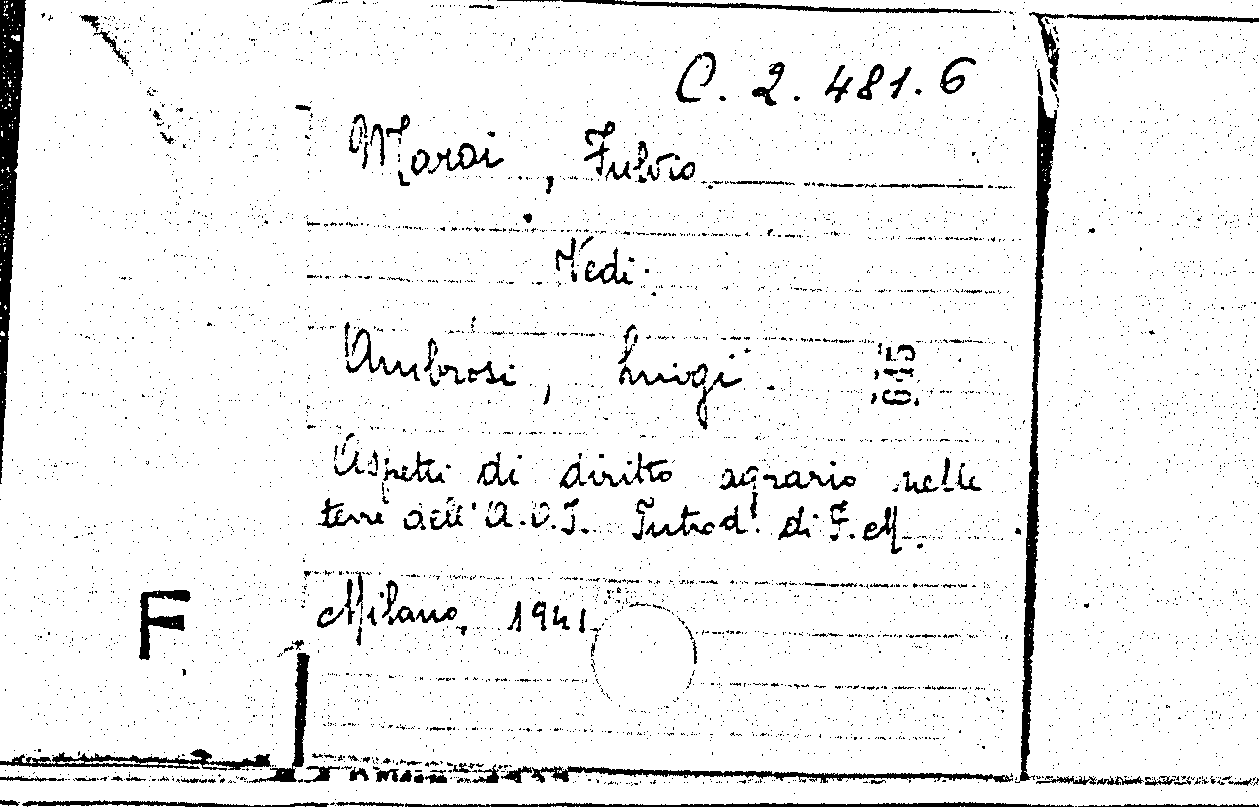 C. 2. 481. 6
Maroi, Fulvio
Vedi:
Ambrosi, Luigi.
Aspetti di diritto agrario nelle
terre dell'A.O.I. Introd. di F. M.
Milano, 1941
F